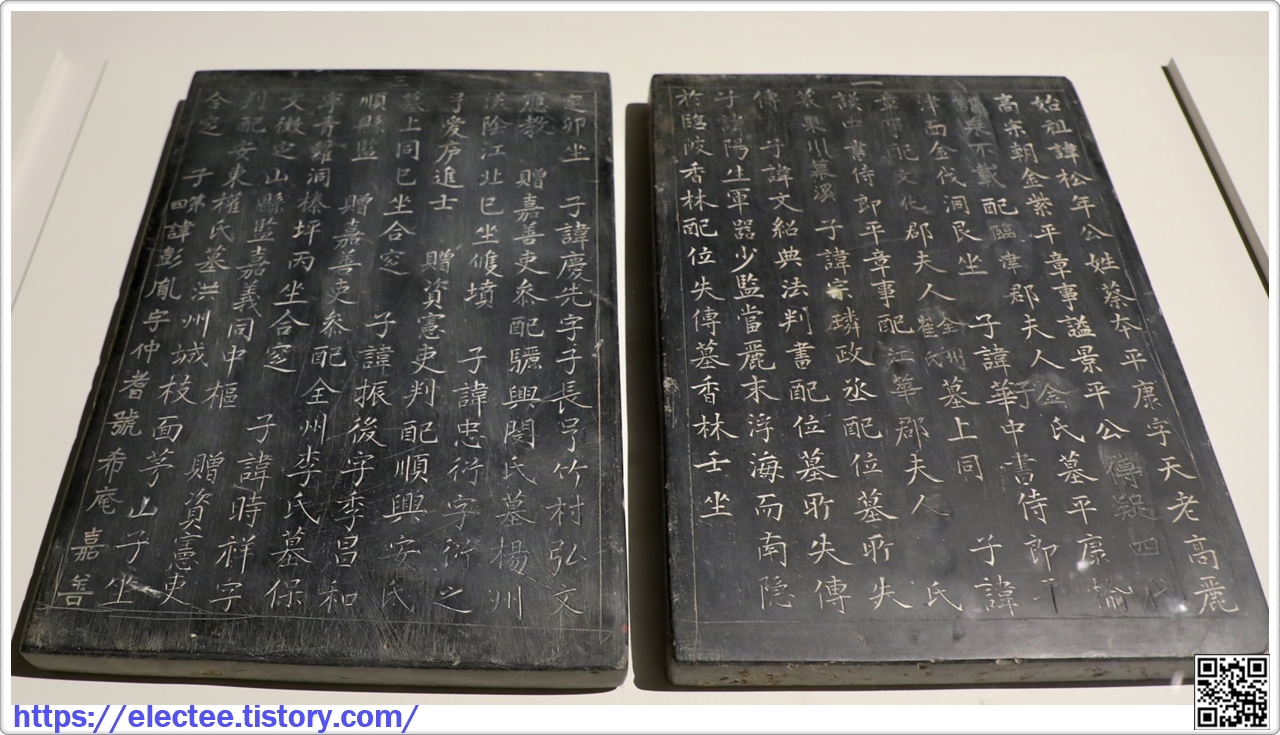 一
始祖諱松年公姓蔡本平康字天老高麗
高宗朝金紫平章事諡景平公傳疑四代
不載配臨津郡夫人金氏墓平康楡
津面金伐洞艮坐 子諱華中書侍郎平
章事配文化郡夫人崔氏金州墓上同 子諱
謨中書侍郎平章事配江華郡夫人 氏
墓集川慕溪 子諱宗璘政丞配位墓所失
傳 子諱文紹典法判書配位墓所失傳
子諱陽生軍器少監當麗末浮海而南隐
於臨陂香林配位失傳墓香林壬坐
三
卯坐 子諱慶先字子長号竹村弘文
應教 贈嘉善吏叅配驪興閔氏墓楊州
渼陰江北巳坐雙墳 子諱忠衍字衍之
号愛庐進士 贈資憲吏判配順興安氏
墓上同巳坐合窆 子諱振後字季昌和
順縣監 贈嘉善吏叅配全州李氏墓保
寧青蘿洞榛坪丙坐合窆 子諱時祥字
文徵定山縣監嘉義同中樞 贈資憲吏
判配安東權氏墓洪州城枝面芧山子坐
合窆 子第四諱彭胤字仲耆號希庵嘉善
https://electee.tistory.com/